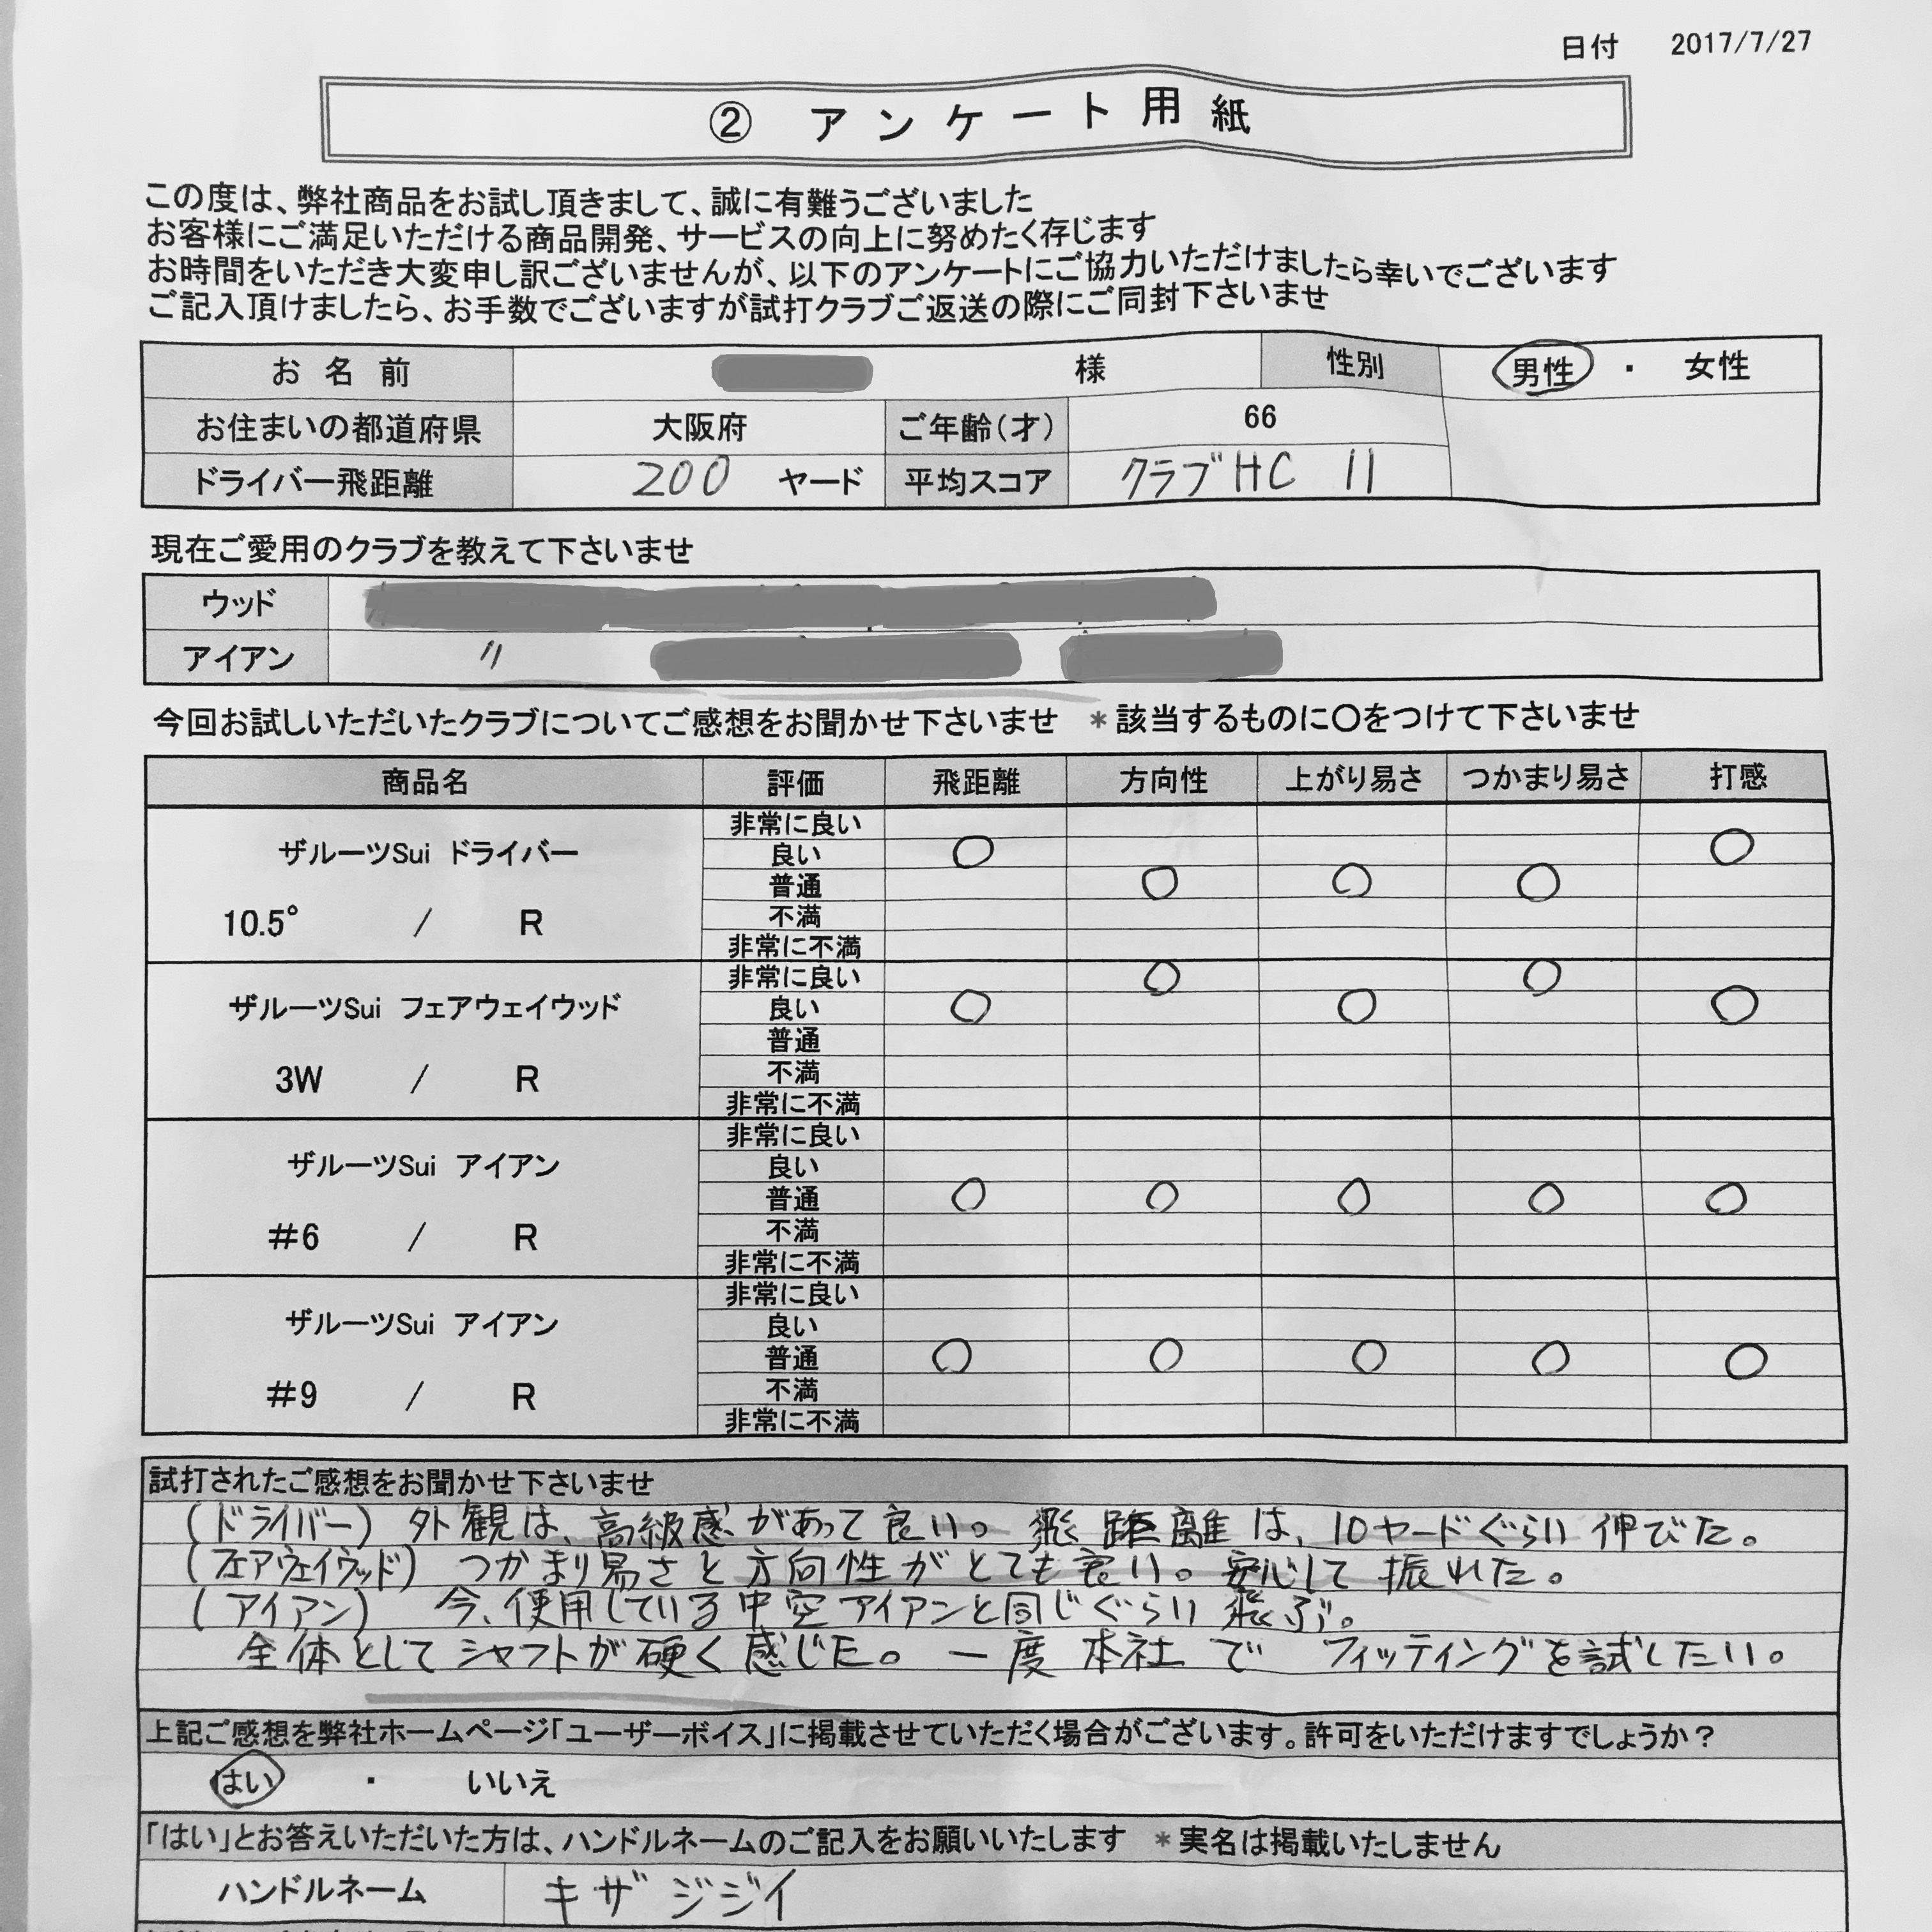 日付 2017/7/27
② アンケート用紙
この度は、弊社商品をお試し頂きまして、誠に有難うございました
お客様にご満足いただける商品開発、サービスの向上に努めたく存じます
お時間をいただき大変申し訳ございませんが、以下のアンケートにご協力いただけましたら幸いでございます
ご記入頂けましたら、お手数でございますが試打クラブご返送の際にご同封下さいませ
お名前 様 性別 男性 ・ 女性
お住まいの都道府県 大阪府 ご年齢(才) 66
ドライバー飛距離 200 ヤード 平均スコア クラブHC 11
現在ご愛用のクラブを教えて下さいませ
ウッド
アイアン 〃
今回お試しいただいたクラブについてご感想をお聞かせ下さいませ *該当するものに〇をつけて下さいませ
商品名 評価 飛距離 方向性 上がり易さ つかまり易さ 打感
ザルーツSui ドライバー
10.5° / R
非常に良い
良い 〇 〇
普通 〇 〇 〇
不満
非常に不満
ザルーツSui フェアウェイウッド
3W / R
非常に良い 〇 〇
良い 〇 〇 〇
普通
不満
非常に不満
ザルーツSui アイアン
#6 / R
非常に良い
良い
普通 〇 〇 〇 〇 〇
不満
非常に不満
ザルーツSui アイアン
#9 / R
非常に良い
良い
普通 〇 〇 〇 〇 〇
不満
非常に不満
試打されたご感想をお聞かせ下さいませ
(ドライバー) 外観は、高級感があって良い。飛距離は、10ヤードぐらい伸びた。
(フェアウェイウッド) つかまり易さと方向性がとても良い。安心して振れた。
(アイアン) 今、使用している中空アイアンと同じぐらい飛ぶ。
全体としてシャフトが硬く感じた。一度本社でフィッティングを試したい。
上記ご感想を弊社ホームページ「ユーザーボイス」に掲載させていただく場合がございます。許可をいただけますでしょうか？
はい ・ いいえ
「はい」とお答えいただいた方は、ハンドルネームのご記入をお願いいたします *実名は掲載いたしません
ハンドルネーム キザジジイ